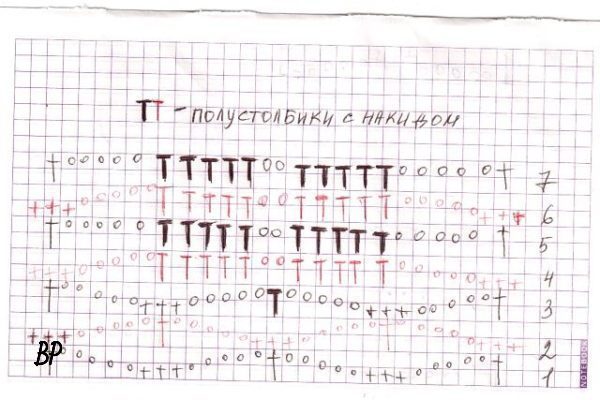 ТТ - ПОЛУСТОЛБИКИ С НАКИДОМ
7
6
5
4
3
2
BP
1
NOTEBOOK